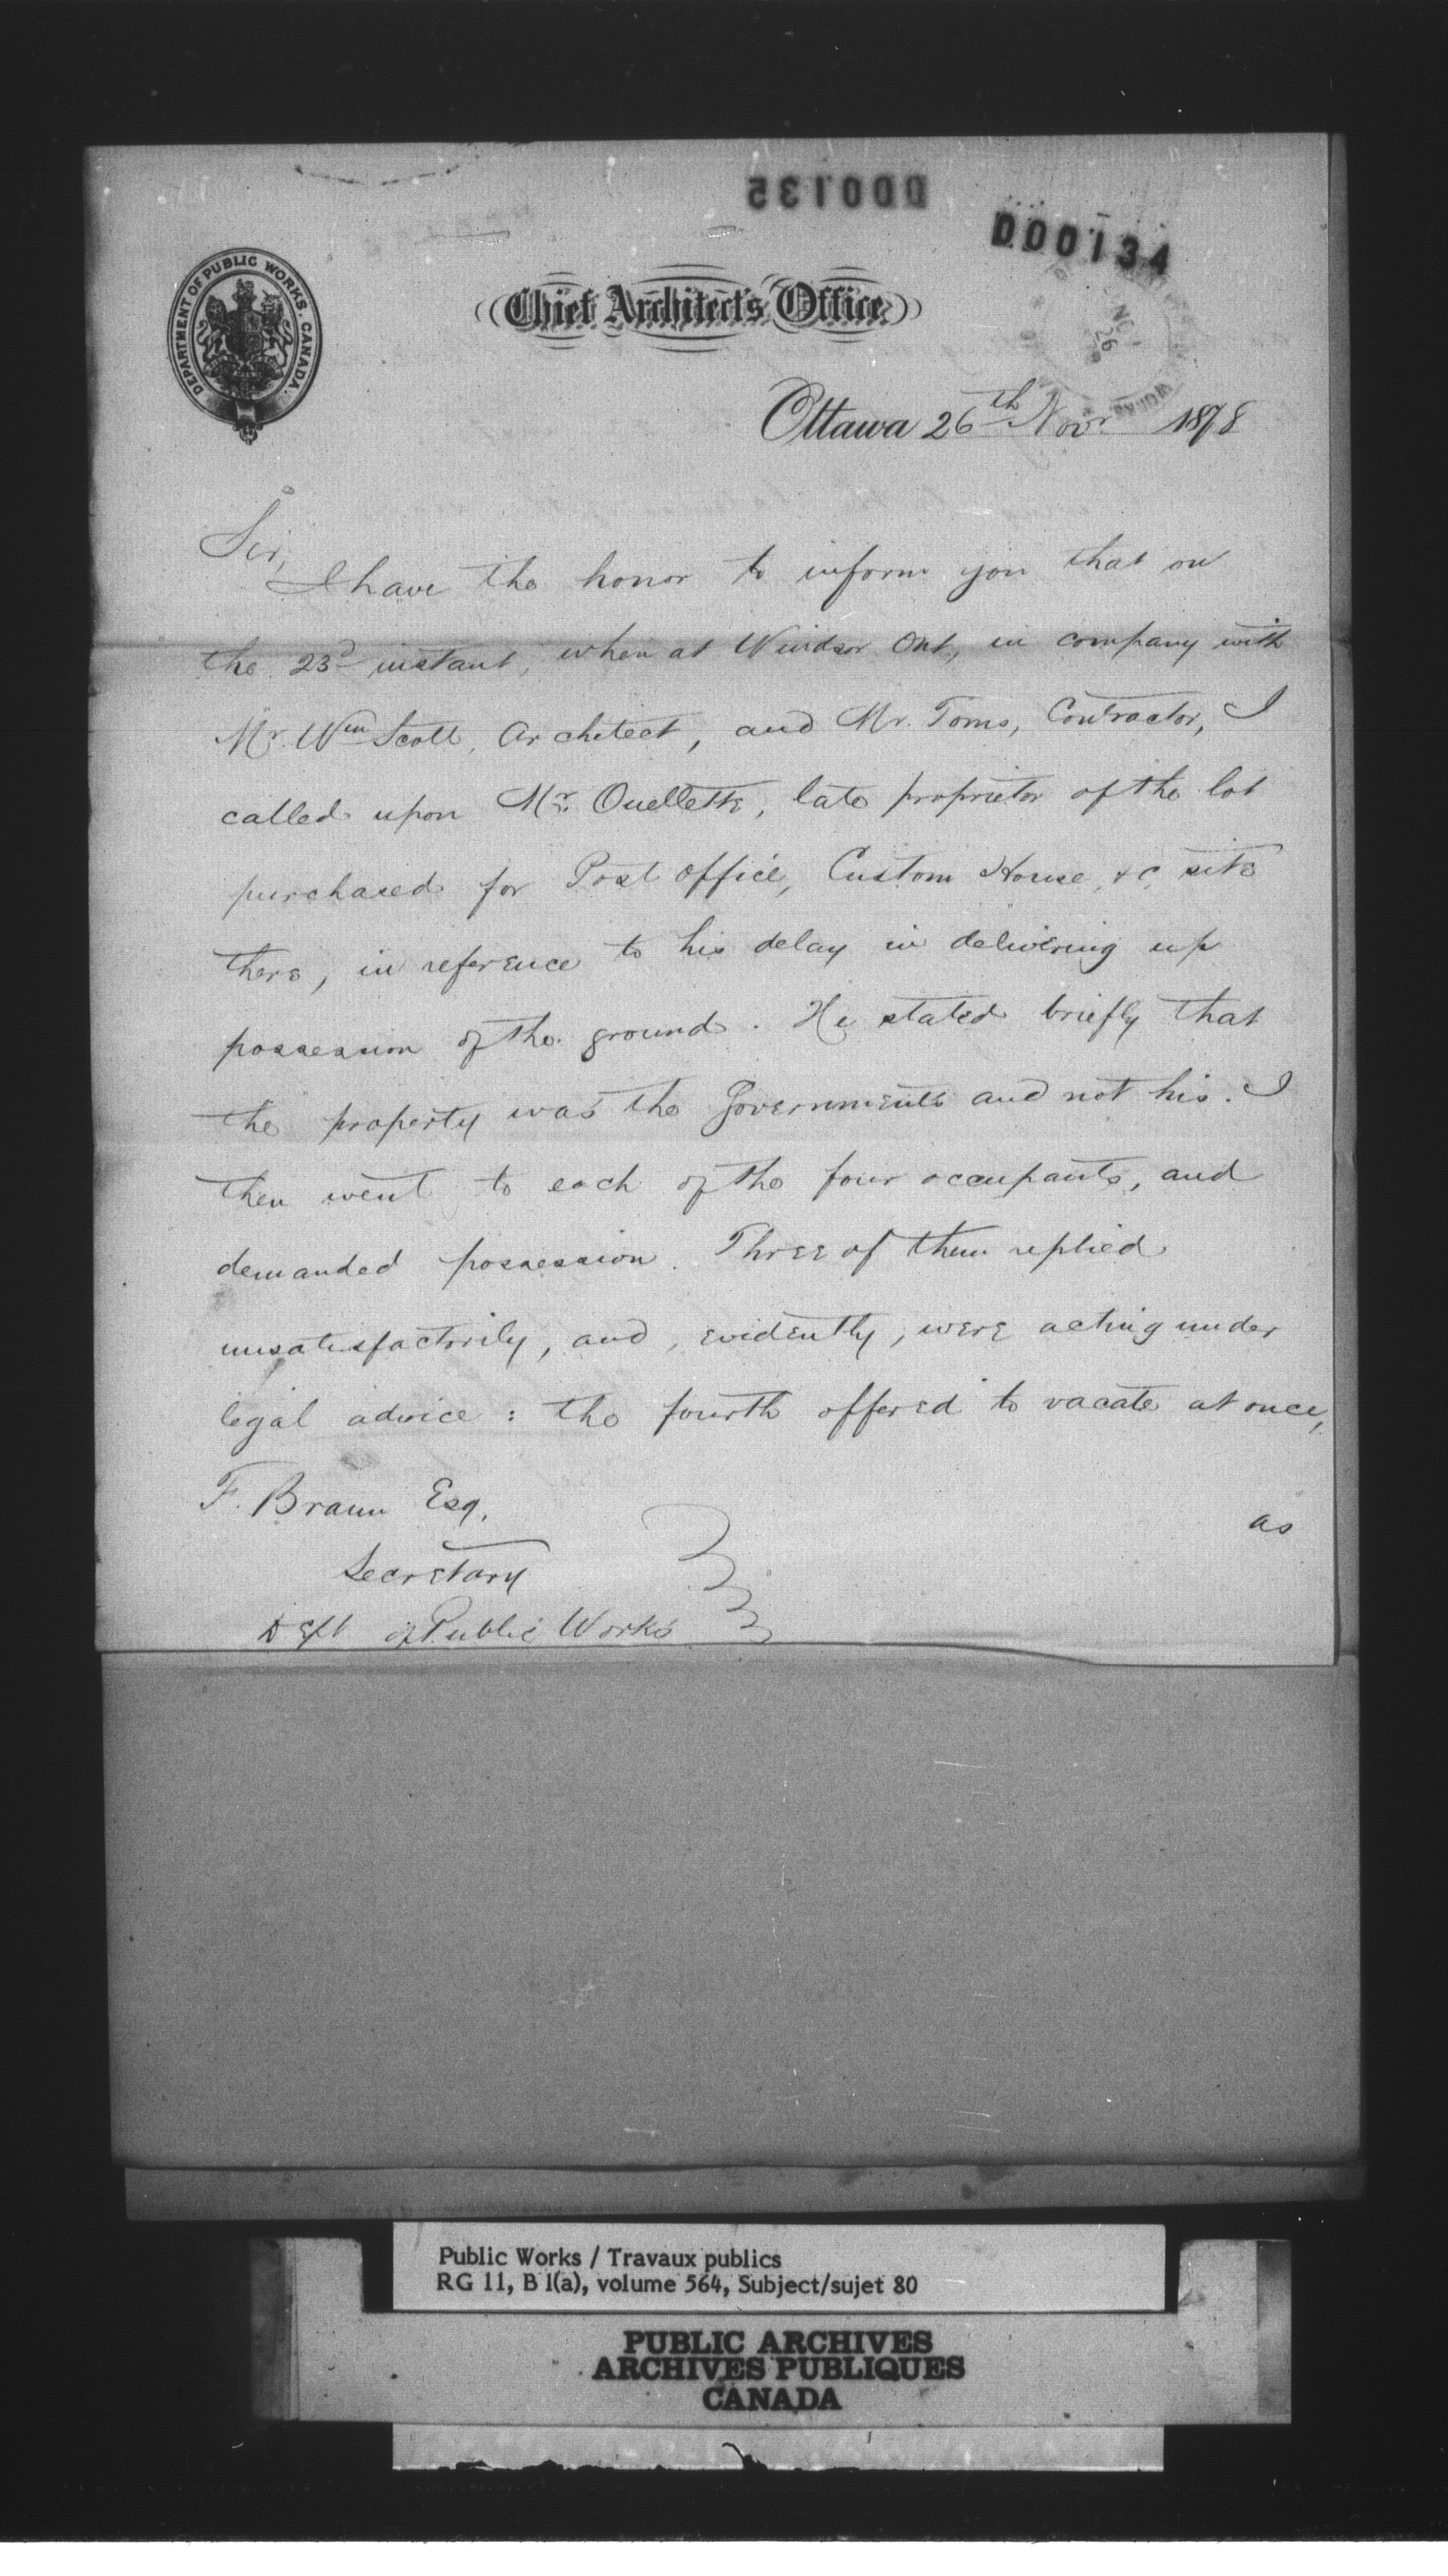 D00135
D00134
DEPARTMENT OF PUBLIC WORKS. CANADA.
Chief Architect's Office
NOV
26
Ottawa 26th Novr 1878
Sir,
I have the honor to inform you that on
the 23d instant, when at Windsor Ont, in company with
Mr. Wm Scott, Architect, and Mr. Toms, Contractor, I
called upon Mr. Ouellette, late proprietor of the lot
purchased for Post office, Custom House, &c, site
there, in reference to his delay in delivering up
possession of the ground. He stated briefly that
the property was the Governments and not his. I
then went to each of the four occupants, and
demanded possession. Three of them replied
unsatisfactorily, and, evidently, were acting under
legal advice: the fourth offered to vacate at once,
as
F. Braun Esq.
Secretary
Dept of Public Works
Public Works / Travaux publics
RG 11, B 1(a), volume 564, Subject/sujet 80
PUBLIC ARCHIVES
ARCHIVES PUBLIQUES
CANADA